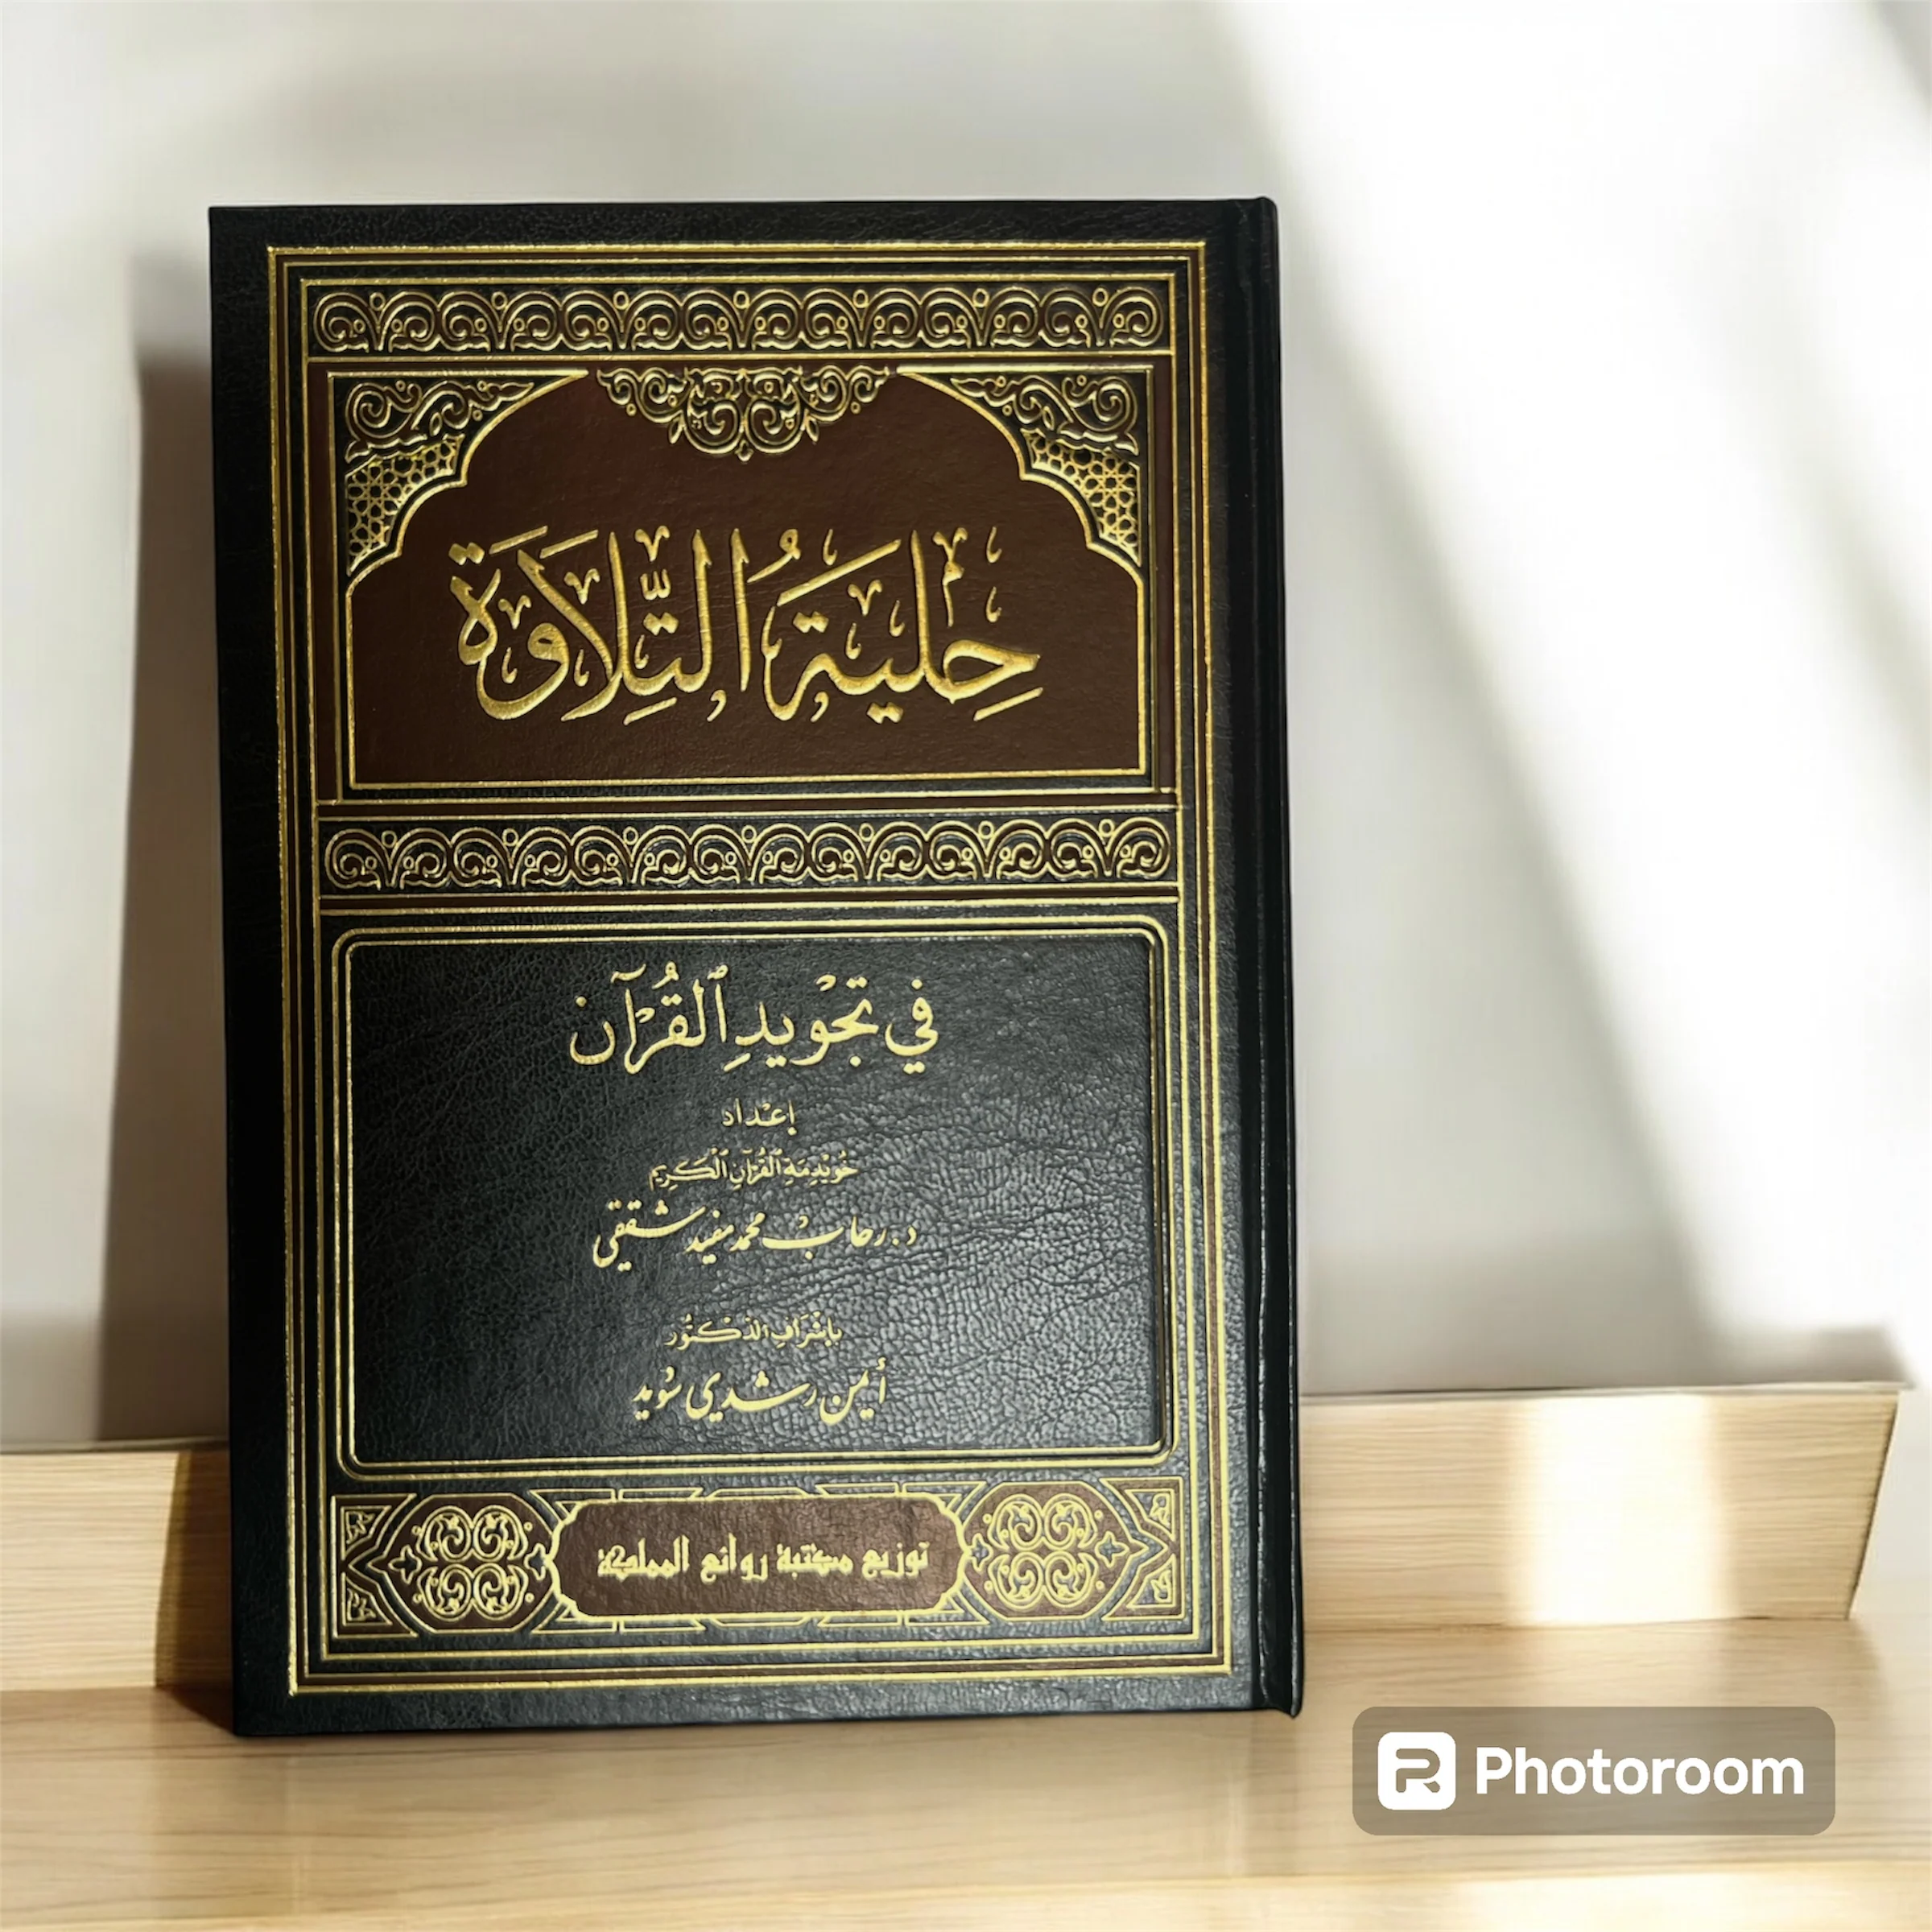 حِلْيَةُ التِّلَاوَة
في تَجْوِيدِ ٱلْقُرْآن
إعْدَاد
خُوَيْدِمَةِ ٱلْقُرْآنِ ٱلْكَرِيم
د. رحاب محمد مفيد شققي
بإشْرَافِ الدُّكْتُور
أيمن رشدي سُوَيد
توزيع مكتبة روائع المملكة
Photoroom